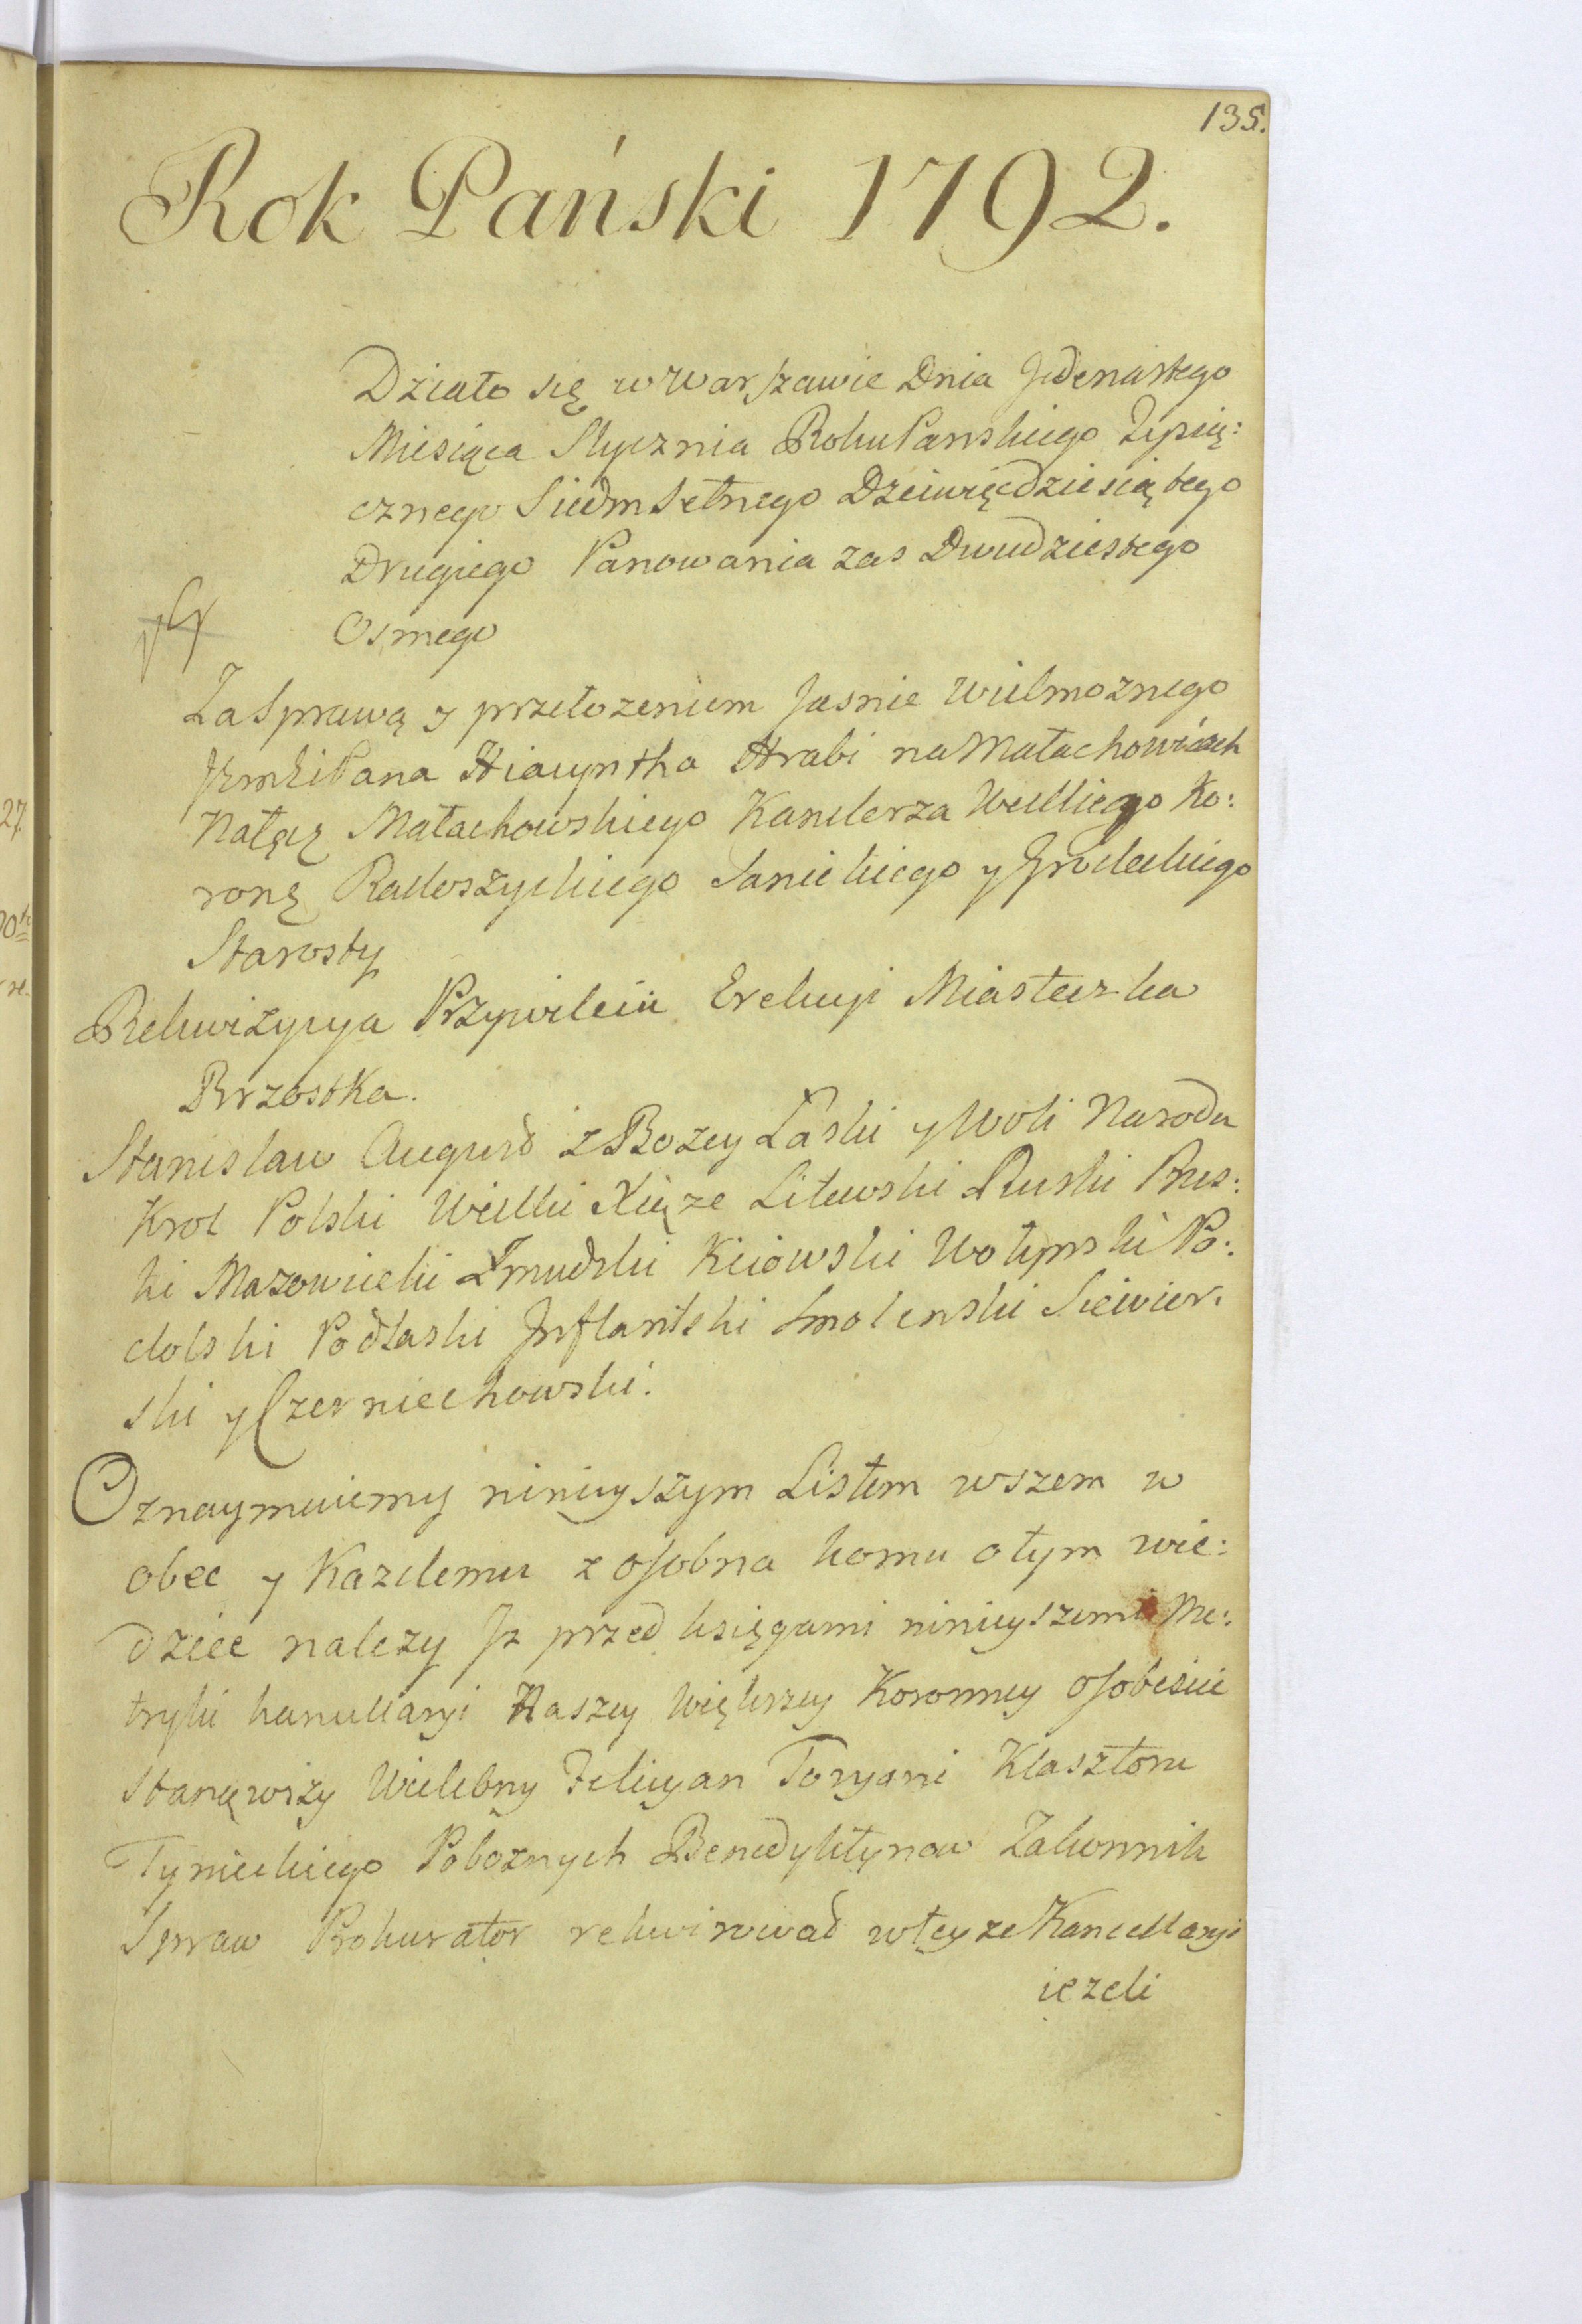 135.
Rok Pański 1792.
Działo się w Warszawie Dnia Jedenastego
Miesiąca Stycznia Roku Panskiego Tysią:
cznego Siedmsetnego Dziewięćdziesiątego
Drugiego Panowania zas Dwudziestego
Osmego
Za Sprawą y przełozeniem Jasnie Wielmoznego
Pana Hiacyntha Hrabi na Małachowicach
Nałęcz Małachowskiego Kanclerza Wielkiego Ko:
ronę Radoszyckiego Sanickiego y Grodeckiego
Starosty
Rekwizycya Przywileiu Erekcyi Miasteczka
Brzostka.
Stanislaw August z Bozey Łaski y Woli Narodu
Krol Polski Wielki Xiąze Litewski Ruski Prus:
ki Mazowiecki Zmudzki Kiiowski Wołynski Po:
dolski Podlaski Inflantski Smolenski Siewier:
ski y Czerniechowski.
Oznaymuiemy ninieyszym Listem wszem w
obec y Kazdemu z osobna komu o tym wie:
dziec nalezy Iz przed księgami ninieyszemi Me:
tryki kancellaryi Naszey większey Koronney osobiscie
Stanąwszy Wielebny Felicyan Toryani Klasztoru
Tynieckiego Poboznych Benedyktynow Zakonnik
Spraw Prokurator rekwirował w teyze Kancellaryi
iezeli
27.